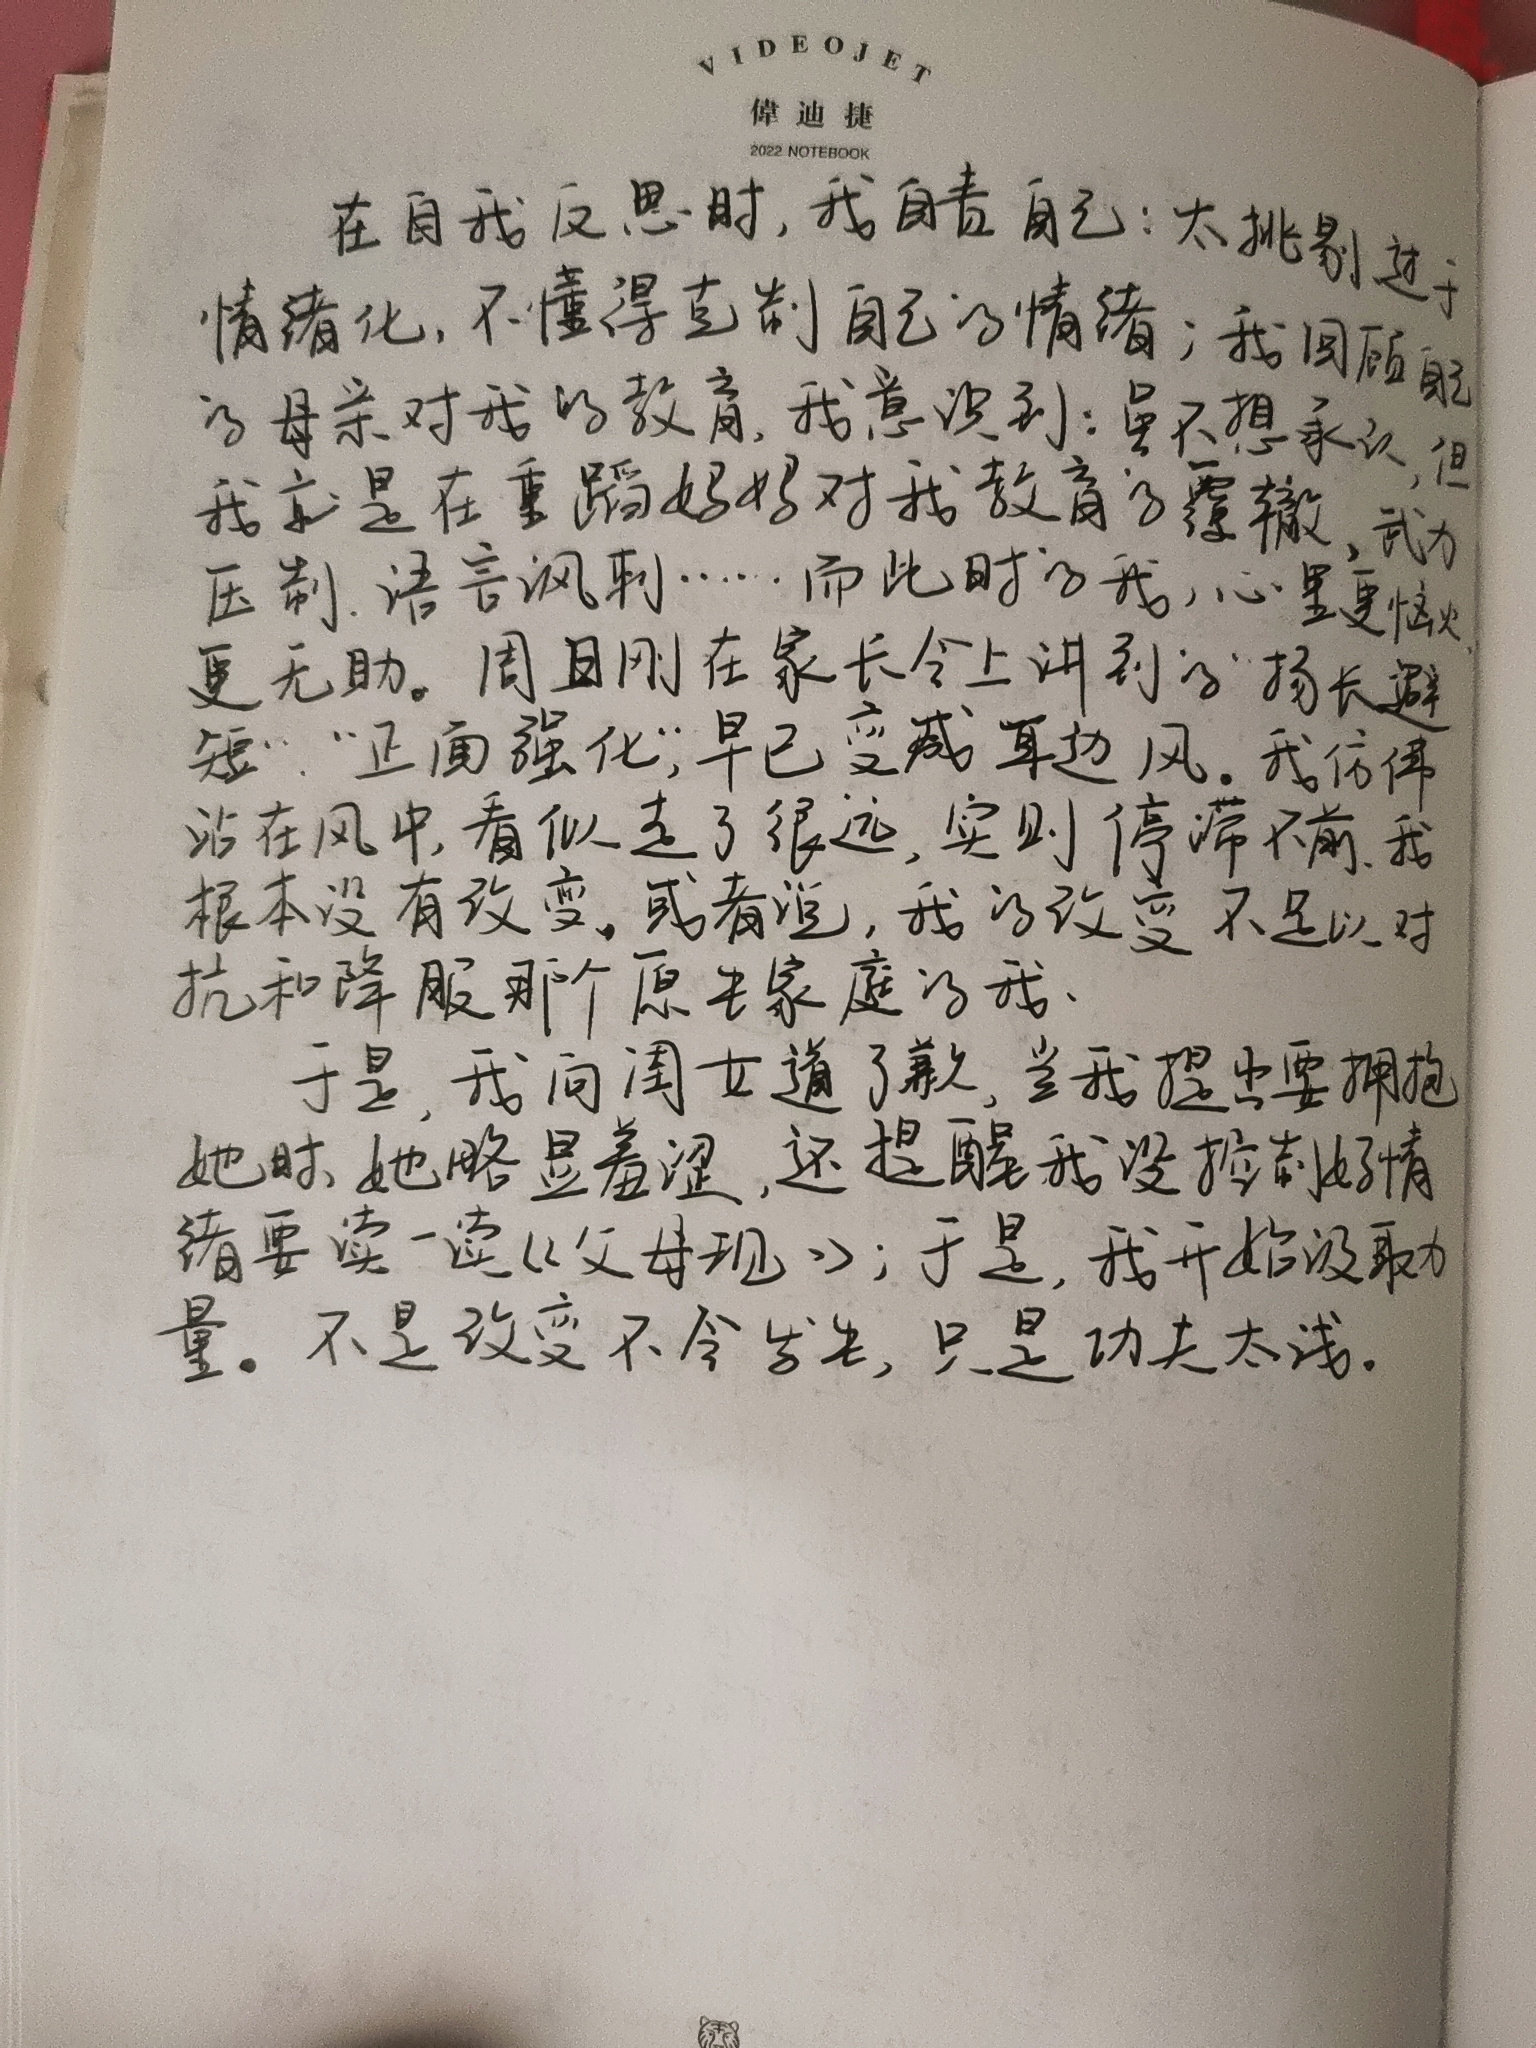 VIDEOJET
偉迪捷
2022 NOTEBOOK
在自我反思时，我自责自己：太挑剔过于
情绪化，不懂得克制自己的情绪；我回顾自己
的母亲对我的教育，我意识到：虽不想承认，但
我就是在重蹈妈妈对我教育的覆辙，武力
压制、语言讽刺……而此时的我，心里更恼火、
更无助。周日刚在家长会上讲到的“扬长避
短”“正面强化”，早已变成耳边风。我仿佛
站在风中，看似走了很远，实则停滞不前、我
根本没有改变。或者说，我的改变不足以对
抗和降服那个原生家庭的我、
于是，我向闺女道了歉，当我提出要拥抱
她时、她略显羞涩，还提醒我没控制好情
绪要读一读《父母规》；于是，我开始汲取力
量。不是改变不会发生，只是功夫太浅。